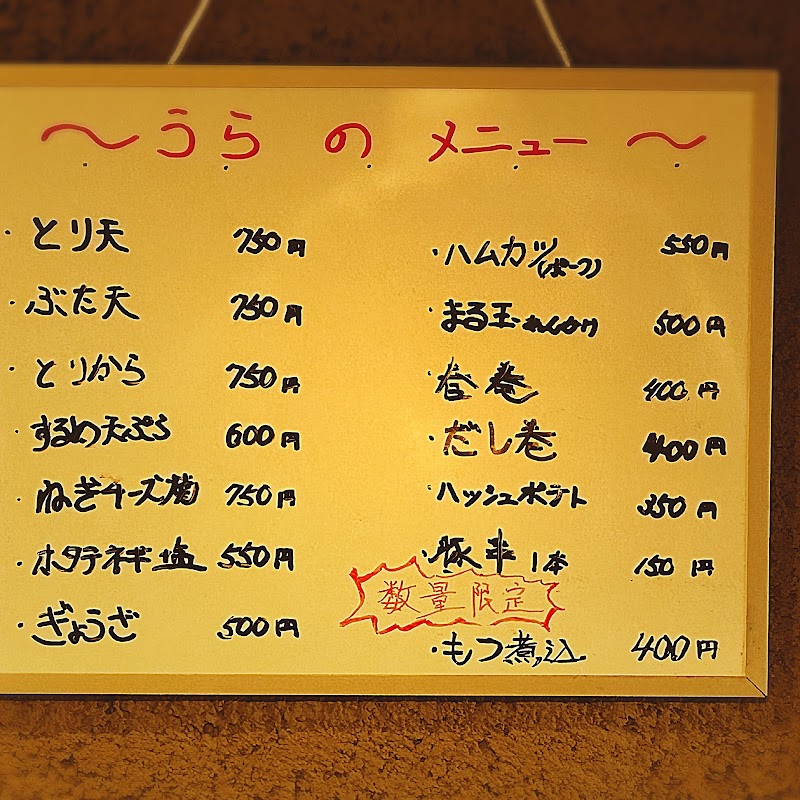 〜うらのメニュー〜
・とり天 750円
・ぶた天 750円
・とりから 750円
・するめ天ぷら 600円
・ねぎチーズ 750円
・ホタテネギ塩 550円
・ぎょうざ 500円
・ハムカツ(ポーク) 550円
・まる玉 500円
・巻 400円
・だし巻 400円
・ハッシュポテト 350円
・豚串 1本 150円
数量限定
・もつ煮込 400円